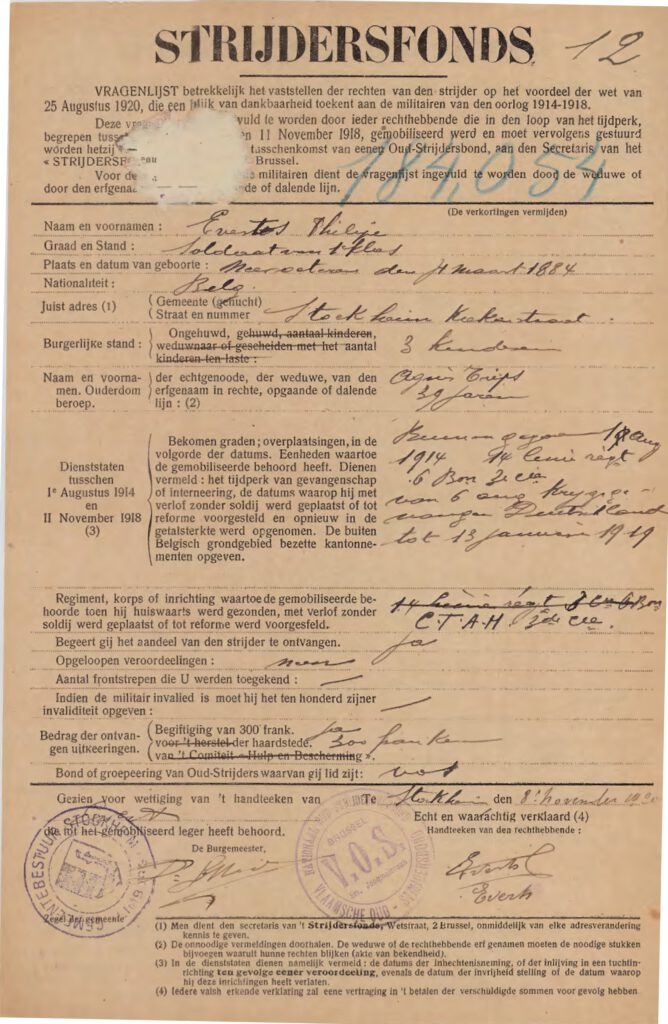 STRIJDERSFONDS 12
VRAGENLIJST betrekkelijk het vaststellen der rechten van den strijder op het voordeel der wet van
25 Augustus 1920, die een blijk van dankbaarheid toekent aan de militairen van den oorlog 1914-1918.
Deze vuld te worden door ieder rechthebbende die in den loop van het tijdperk,
begrepen tussc n 11 November 1918, gemobiliseerd werd en moet vervolgens gestuurd
worden hetzij tusschenkomst van eenen Oud-Strijdersbond, aan den Secretaris van het
« STRIJDERSF Brussel.
Voor de militairen dient de vragenlijst ingevuld te worden door de weduwe of
door den erfgenaa de of dalende lijn.
184,054
(De verkortingen vermijden)
Naam en voornamen : Everts Philipe
Graad en Stand : Soldaat van 1e klas
Plaats en datum van geboorte : den maart 1884
Nationaliteit : Belg
Juist adres (1) Gemeente (gehucht)
Straat en nummer Stockheim
Burgerlijke stand : Ongehuwd, gehuwd, aantal kinderen,
weduwnaar of gescheiden met het aantal
kinderen ten laste : 3 kinderen
Naam en voorna- der echtgenoode, der weduwe, van den
men. Ouderdom erfgenaam in rechte, opgaande of dalende
beroep. lijn : (2)
39 jaren
Bekomen graden ; overplaatsingen, in de
volgorde der datums. Eenheden waartoe
de gemobiliseerde behoord heeft. Dienen
vermeld : het tijdperk van gevangenschap
of interneering, de datums waarop hij met
verlof zonder soldij werd geplaatst of tot
reforme voorgesteld en opnieuw in de
getalsterkte werd opgenomen. De buiten
Belgisch grondgebied bezette kantonne-
menten opgeven.
Dienststaten
tusschen
1e Augustus 1914
en
11 November 1918
(3)
Aug
1914 14 linie regt
6 Bon 3e cie
van 6 aug krygsge-
vangen Deutschland
tot 13 januari 1919
Regiment, korps of inrichting waartoe de gemobiliseerde be-
hoorde toen hij huiswaarts werd gezonden, met verlof zonder
soldij werd geplaatst of tot reforme werd voorgesteld.
14 linie regt
C.T.A.H 3de cie.
Begeert gij het aandeel van den strijder te ontvangen. ja
Opgeloopen veroordeelingen : neen
Aantal frontstrepen die U werden toegekend : —
Indien de militair invalied is moet hij het ten honderd zijner
invaliditeit opgeven : —
Bedrag der ontvan-
gen uitkeeringen. Begiftiging van 300 frank. ja
voor 't herstel der haardstede. 300 franken
van 't Comiteit « Hulp en Bescherming ».
Bond of groepeering van Oud-Strijders waarvan gij lid zijt : vos
Gezien voor wettiging van 't handteeken van Te Stockheim den 8e November
Echt en waarachtig verklaard (4)
die tot het gemobiliseerd leger heeft behoord. Handteeken van den rechthebbende :
De Burgemeester,
Everts
Everts
GEMEENTEBESTUUR STOCKHEIM
V.O.S.
BRUSSEL
VLAAMSCHE OUD
Zegel der gemeente
(1) Men dient den secretaris van 't Strijdersfonds, Wetstraat, 2 Brussel, onmiddelijk van elke adresverandering
kennis te geven.
(2) De onnoodige vermeldingen doorhalen. De weduwe of de rechthebbende erf genamen moeten de noodige stukken
bijvoegen waaruit hunne rechten blijken (akte van bekendheid).
(3) In de dienststaten dienen namelijk vermeld : de datums der inhechtenisneming, of der inlijving in een tuchtin-
richting ten gevolge eener veroordeeling, evenals de datum der invrijheid stelling of de datum waarop
hij deze inrichtingen heeft verlaten.
(4) Iedere valsh erkende verklaring zal eene vertraging in 't betalen der verschuldigde sommen voor gevolg hebben.